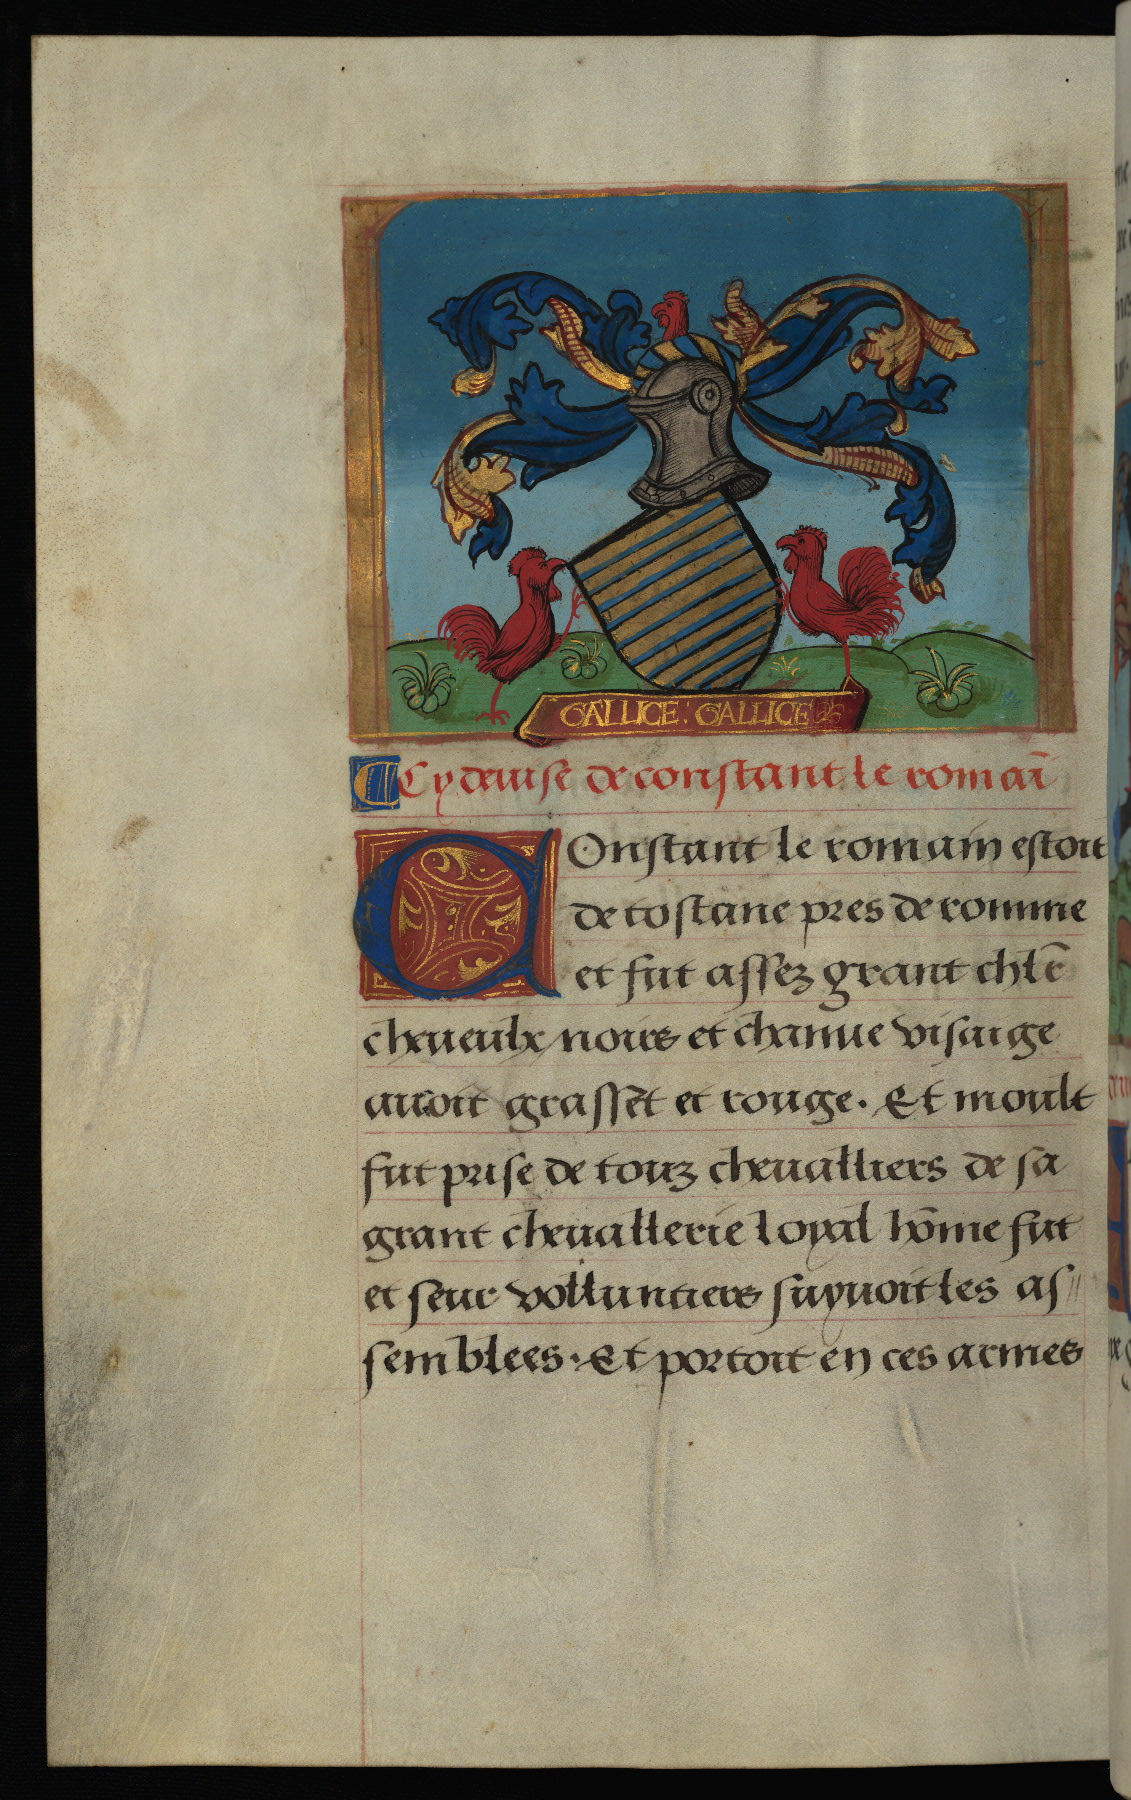 GALLICE : GALLICE
Cy deuise de constant le romaī
Constant le romain estoit
de tostane pres de romme
et fut assez grant chl̄r
cheueulx noirs et chanue visaige
auoit grasset et rouge. Et moult
fut prise de touz cheualliers de sa
grant cheuallerie loyal hōme fut
et seur volluntiers suyuoit les as//
semblees. Et portoit en ces armes